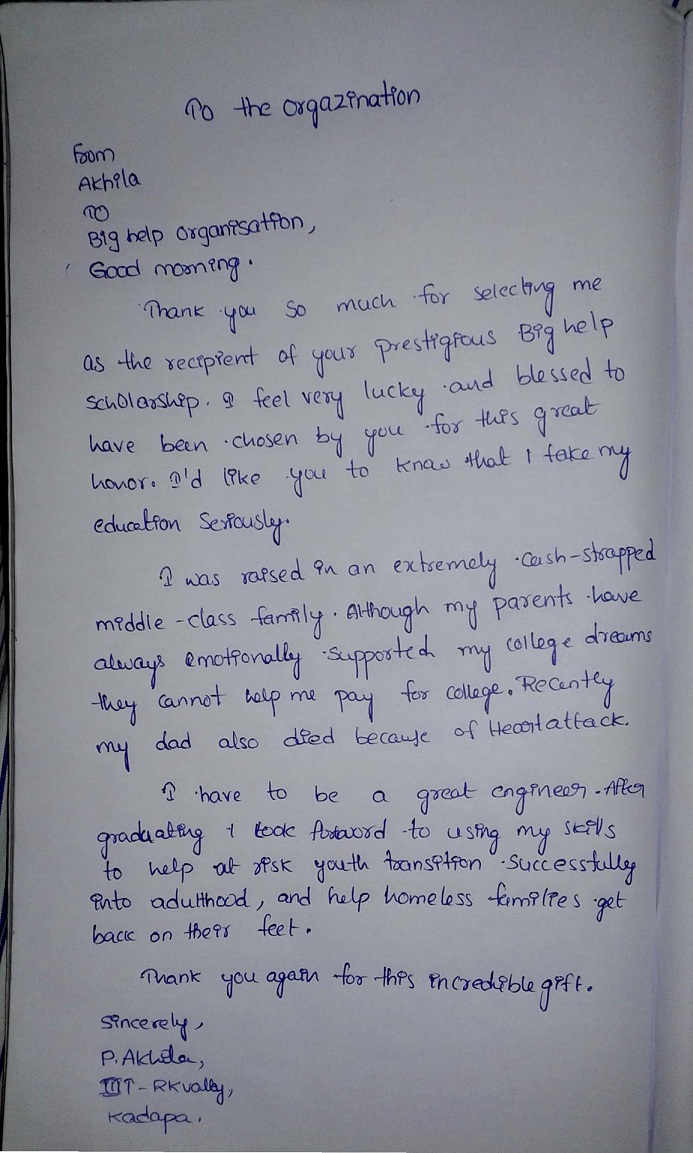 To the orgazination
From
Akhila
TO
Big help organisation,
Good morning.
Thank you so much for selecting me
as the recipient of your prestigious Big help
scholarship. I feel very lucky and blessed to
have been chosen by you for this great
honor. I'd like you to know that I take my
education seriously.
I was raised in an extremely cash-strapped
middle-class family. Although my parents have
always emotionally supported my college dreams
they cannot help me pay for college. Recently
my dad also died because of Heart attack.
I have to be a great engineer. After
graduating I look forword to using my skills
to help at risk youth transition successfully
into adulthood, and help homeless families get
back on their feet.
Thank you again for this incredible gift.
Sincerely,
P. Akhila,
IIIT-RKvally,
Kadapa.